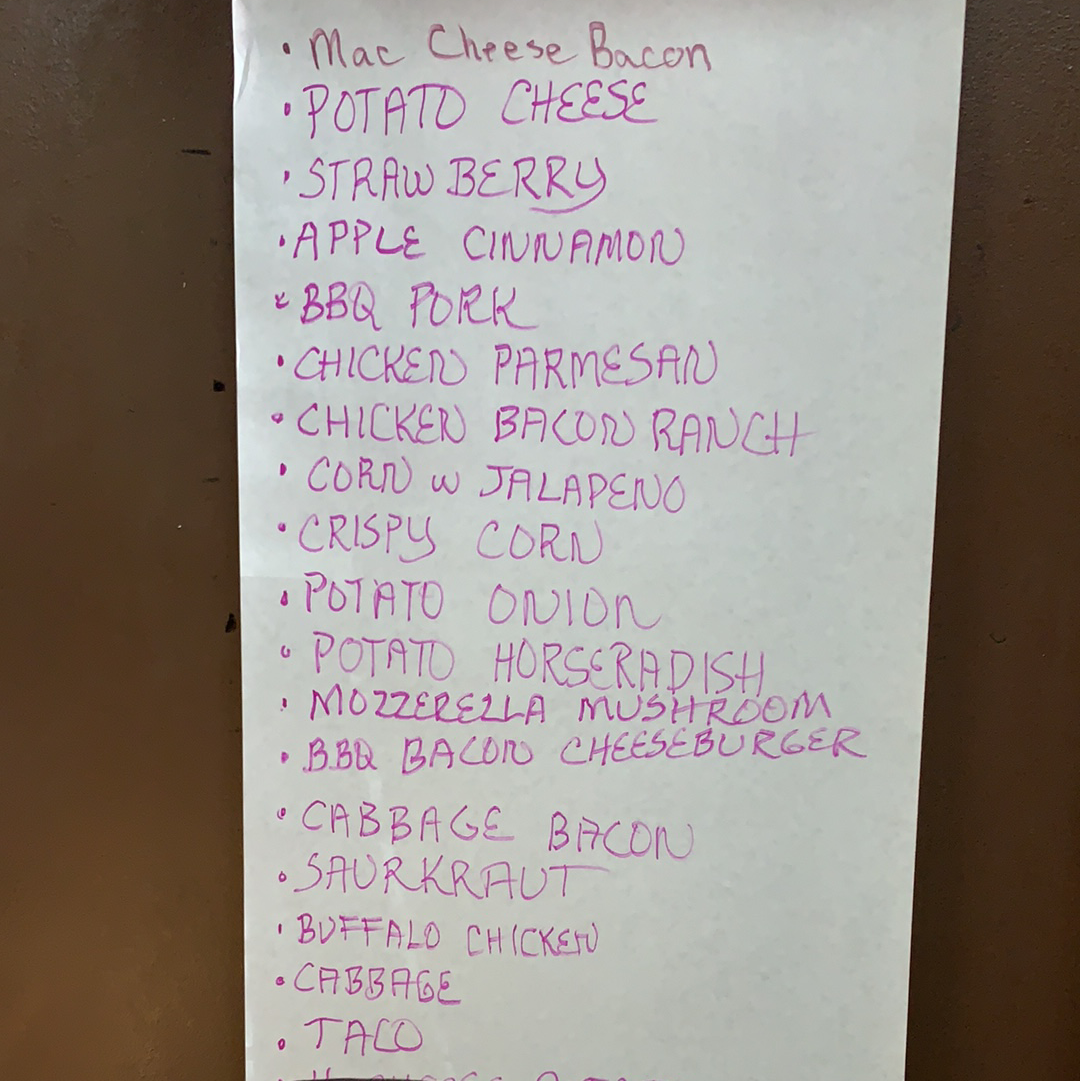 • Mac Cheese Bacon
• POTATO CHEESE
• STRAWBERRY
• APPLE CINNAMON
• BBQ PORK
• CHICKEN PARMESAN
• CHICKEN BACON RANCH
• CORN w JALAPENO
• CRISPY CORN
• POTATO ONION
• POTATO HORSERADISH
• MOZZERELLA MUSHROOM
• BBQ BACON CHEESEBURGER
• CABBAGE BACON
• SAURKRAUT
• BUFFALO CHICKEN
• CABBAGE
• TACO